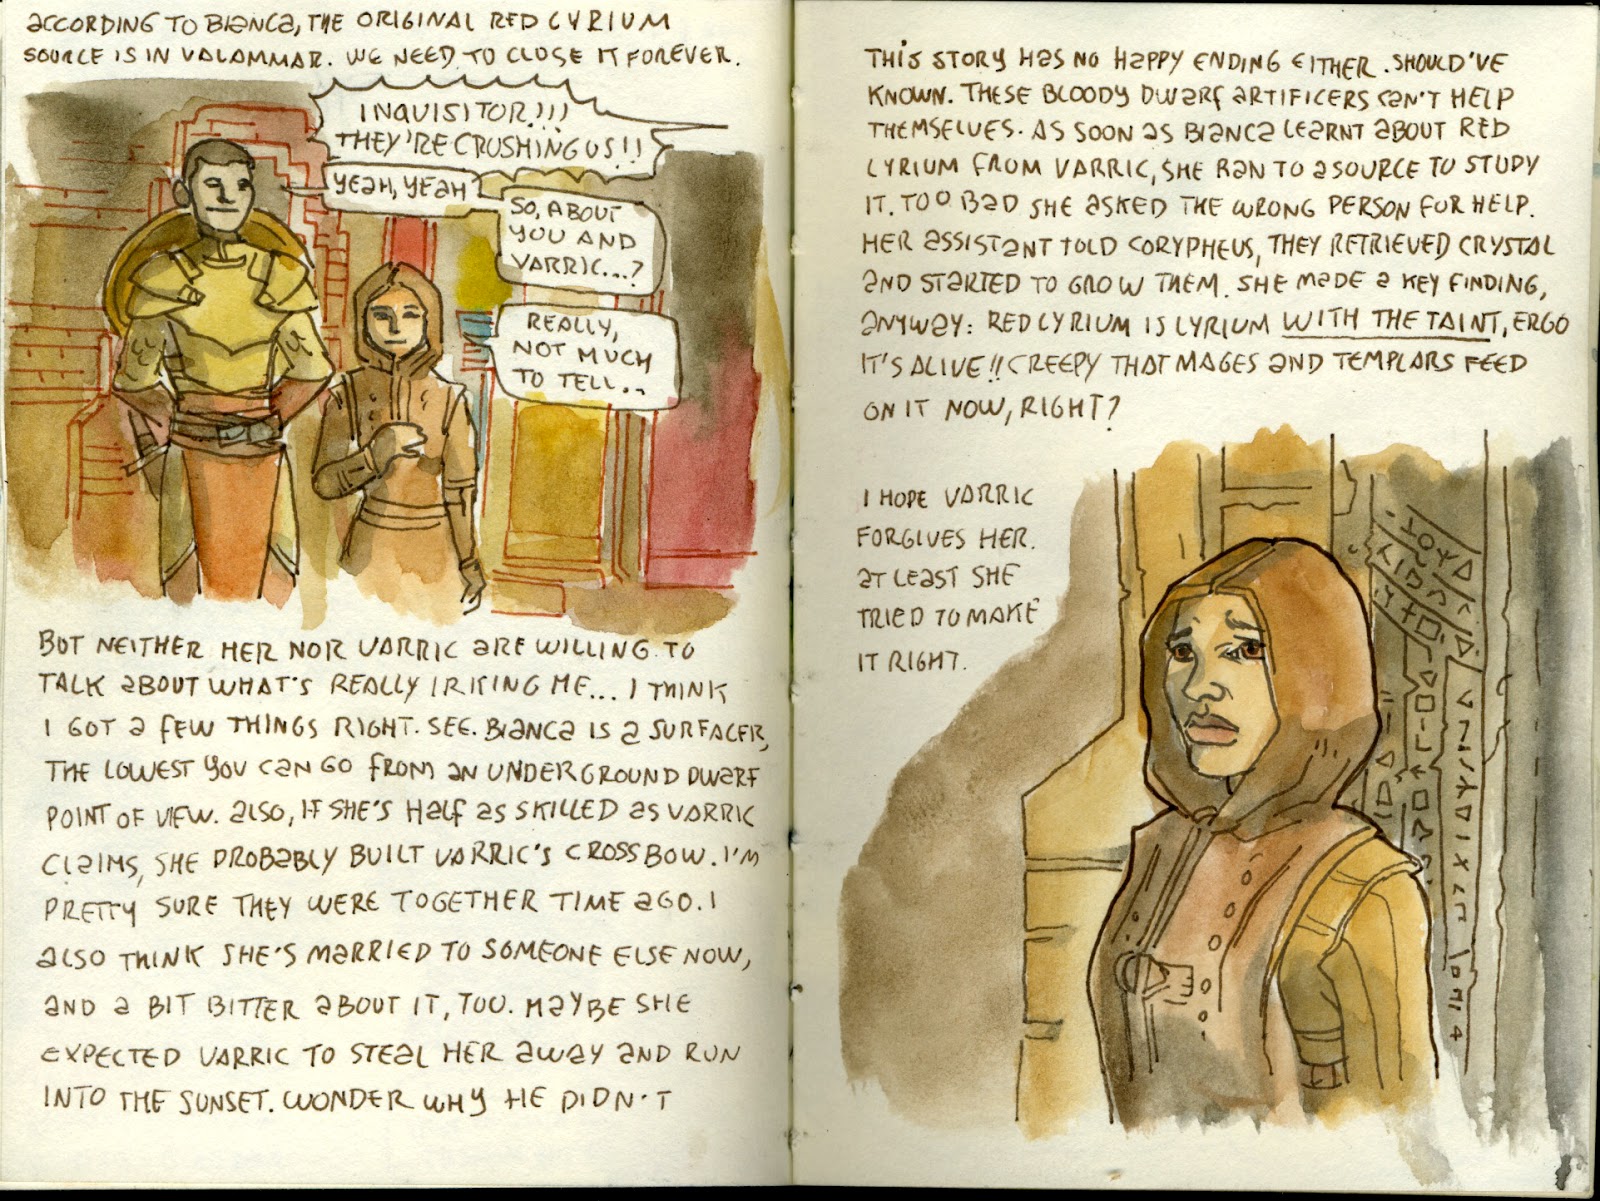 ACCORDING TO BIANCA, THE ORIGINAL RED LYRIUM
SOURCE IS IN VALAMMAR. WE NEED TO CLOSE IT FOREVER.
INQUISITOR!!!
THEY'RE CRUSHING US!!
YEAH, YEAH
SO, ABOUT
YOU AND
VARRIC...?
REALLY,
NOT MUCH
TO TELL...
BUT NEITHER HER NOR VARRIC ARE WILLING TO
TALK ABOUT WHAT'S REALLY IRKING ME... I THINK
I GOT A FEW THINGS RIGHT. SEE. BIANCA IS A SURFACER,
THE LOWEST YOU CAN GO FROM AN UNDERGROUND DWARF
POINT OF VIEW. ALSO, IF SHE'S HALF AS SKILLED AS VARRIC
CLAIMS, SHE PROBABLY BUILT VARRIC'S CROSSBOW. I'M
PRETTY SURE THEY WERE TOGETHER TIME AGO. I
ALSO THINK SHE'S MARRIED TO SOMEONE ELSE NOW,
AND A BIT BITTER ABOUT IT, TOO. MAYBE SHE
EXPECTED VARRIC TO STEAL HER AWAY AND RUN
INTO THE SUNSET. WONDER WHY HE DIDN'T
THIS STORY HAS NO HAPPY ENDING EITHER. SHOULD'VE
KNOWN. THESE BLOODY DWARF ARTIFICERS CAN'T HELP
THEMSELVES. AS SOON AS BIANCA LEARNT ABOUT RED
LYRIUM FROM VARRIC, SHE RAN TO A SOURCE TO STUDY
IT. TOO BAD SHE ASKED THE WRONG PERSON FOR HELP.
HER ASSISTANT TOLD CORYPHEUS, THEY RETRIEVED CRYSTAL
AND STARTED TO GROW THEM. SHE MADE A KEY FINDING,
ANYWAY: RED LYRIUM IS LYRIUM WITH THE TAINT, ERGO
IT'S ALIVE!! CREEPY THAT MAGES AND TEMPLARS FEED
ON IT NOW, RIGHT?
I HOPE VARRIC
FORGIVES HER.
AT LEAST SHE
TRIED TO MAKE
IT RIGHT.